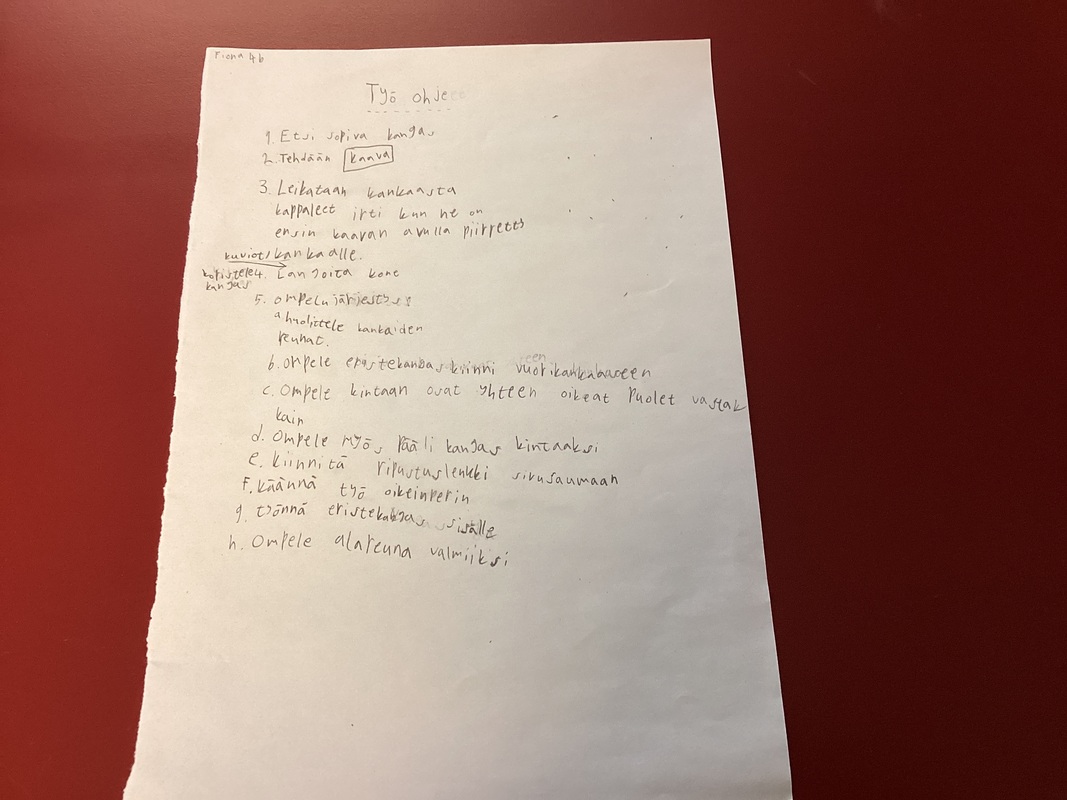 Fiona 4b
Työ ohje
1. Etsi sopiva kangas
2. Tehdään kaava
3. Leikataan kankaasta
kappaleet irti kun ne on
ensin kaavan avulla piirretty
kuviot/kankaalle.
koristele 4. Langoita kone
kangas
5. ompelujärjestys
a huolittele kankaiden
reunat.
b. ompele eristekangas kiinni vuorikankaaseen
c. Ompele kintaan osat yhteen oikeat puolet vastak
kain
d. Ompele myös pääli kangas kintaaksi
e. kiinnitä ripustuslenkki sivusaumaan
f. käännä työ oikeinperin
g. työnnä eristekangas sisälle
h. Ompele alareuna valmiiksi